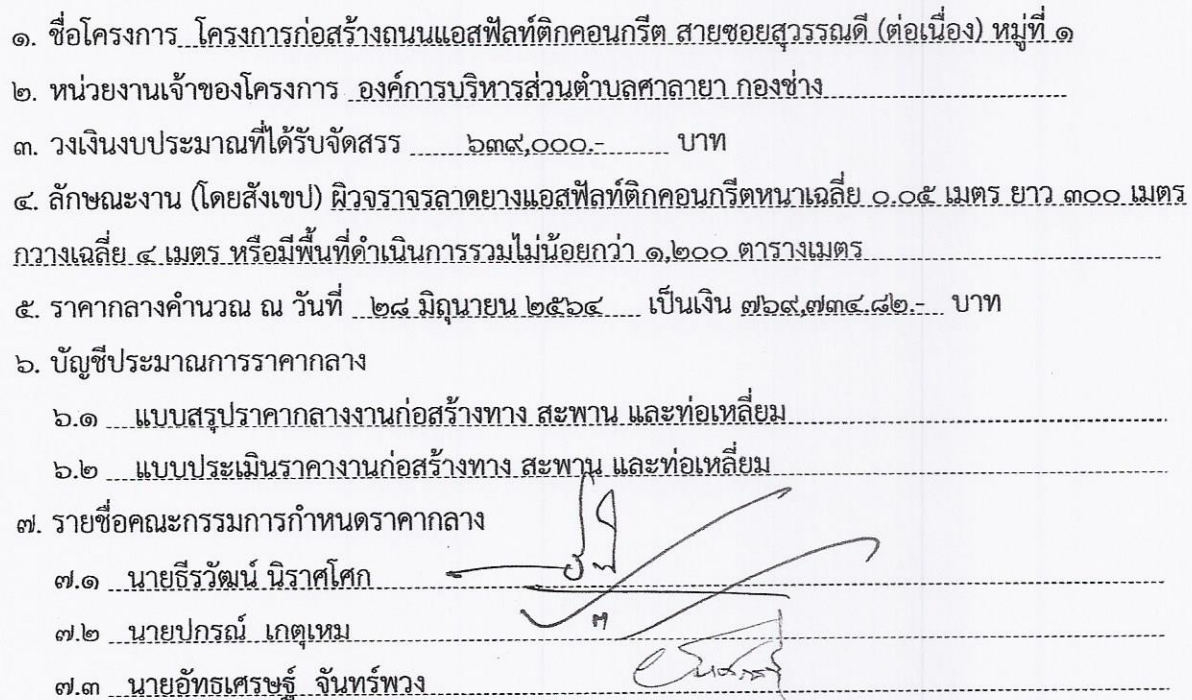 ๑. ชื่อโครงการ โครงการก่อสร้างถนนแอสฟัลท์ติกคอนกรีต สายซอยสุวรรณดี (ต่อเนื่อง) หมู่ที่ ๑
๒. หน่วยงานเจ้าของโครงการ องค์การบริหารส่วนตำบลศาลายา กองช่าง
๓. วงเงินงบประมาณที่ได้รับจัดสรร ๖๓๙,๐๐๐.- บาท
๔. ลักษณะงาน (โดยสังเขป) ผิวจราจรลาดยางแอสฟัลท์ติกคอนกรีตหนาเฉลี่ย ๐.๐๕ เมตร ยาว ๓๐๐ เมตร
กวางเฉลี่ย ๔ เมตร หรือมีพื้นที่ดำเนินการรวมไม่น้อยกว่า ๑,๒๐๐ ตารางเมตร
๕. ราคากลางคำนวณ ณ วันที่ ๒๘ มิถุนายน ๒๕๖๔ เป็นเงิน ๗๖๙,๗๓๔.๘๒.- บาท
๖. บัญชีประมาณการราคากลาง
๖.๑ แบบสรุปราคากลางงานก่อสร้างทาง สะพาน และท่อเหลี่ยม
๖.๒ แบบประเมินราคางานก่อสร้างทาง สะพาน และท่อเหลี่ยม
๗. รายชื่อคณะกรรมการกำหนดราคากลาง
๗.๑ นายธีรวัฒน์ นิราศโศก
๗.๒ นายปกรณ์ เกตุเหม
๗.๓ นายอัทธเศรษฐ์ จันทร์พวง